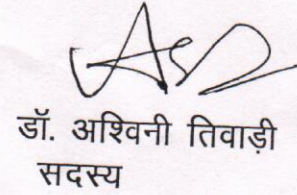 डॉ. अश्विनी तिवाड़ी
सदस्य